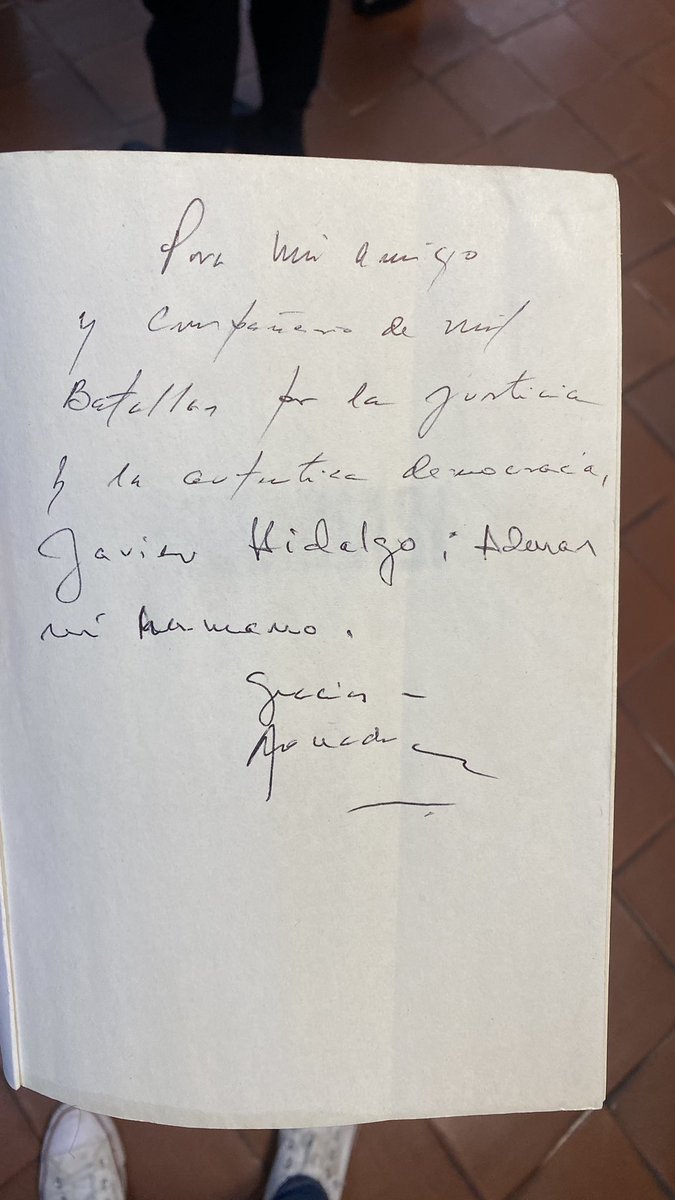 Para mi amigo
y compañero de mil
Batallas por la justicia
y la autentica democracia,
Javier Hidalgo; Ademas
mi hermano.
Gracias -